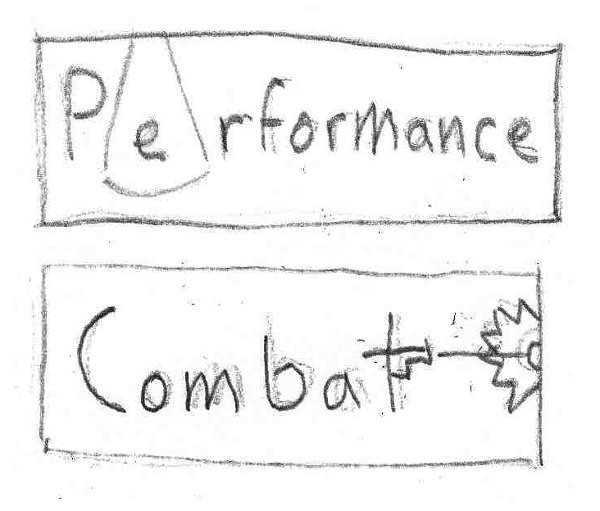 Performance
Combat